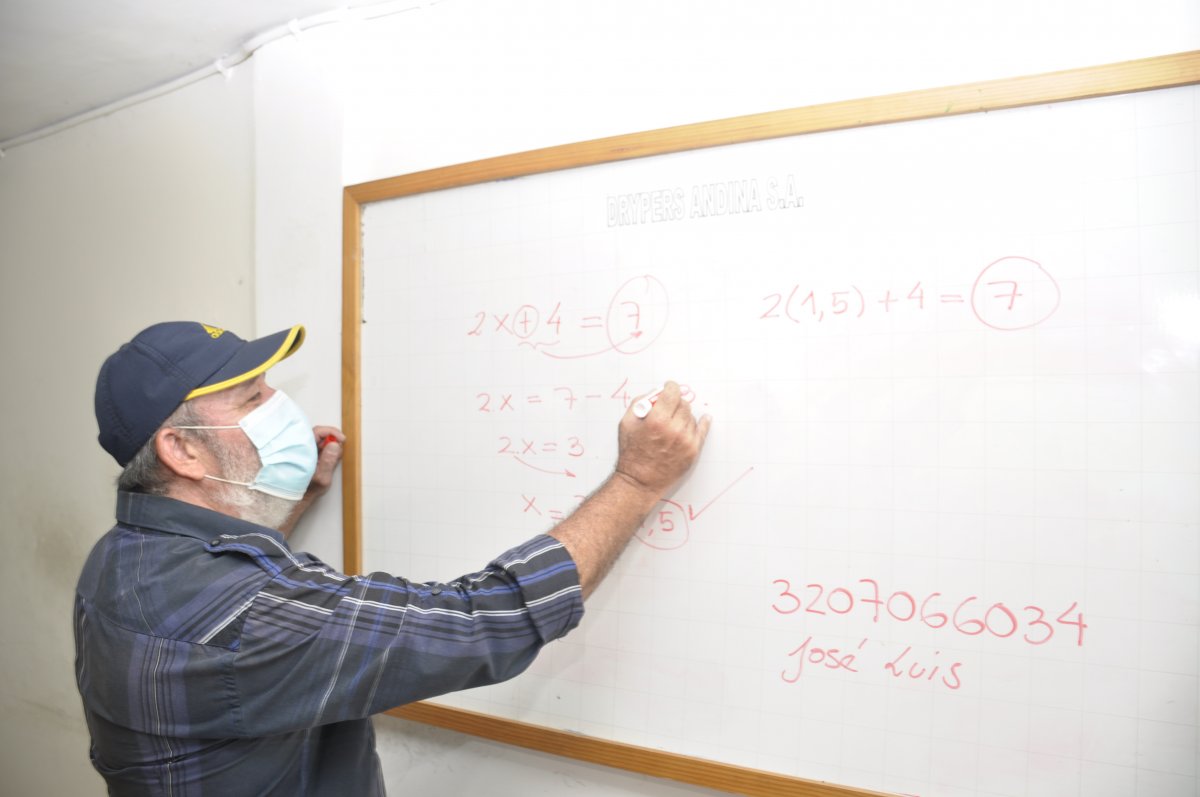 DRYPERS ANDINA S.A.
2x + 4 = 7
2x = 7 - 4
2x = 3
x =
,5
2(1,5) + 4 = 7
3207066034
José Luis
adidas